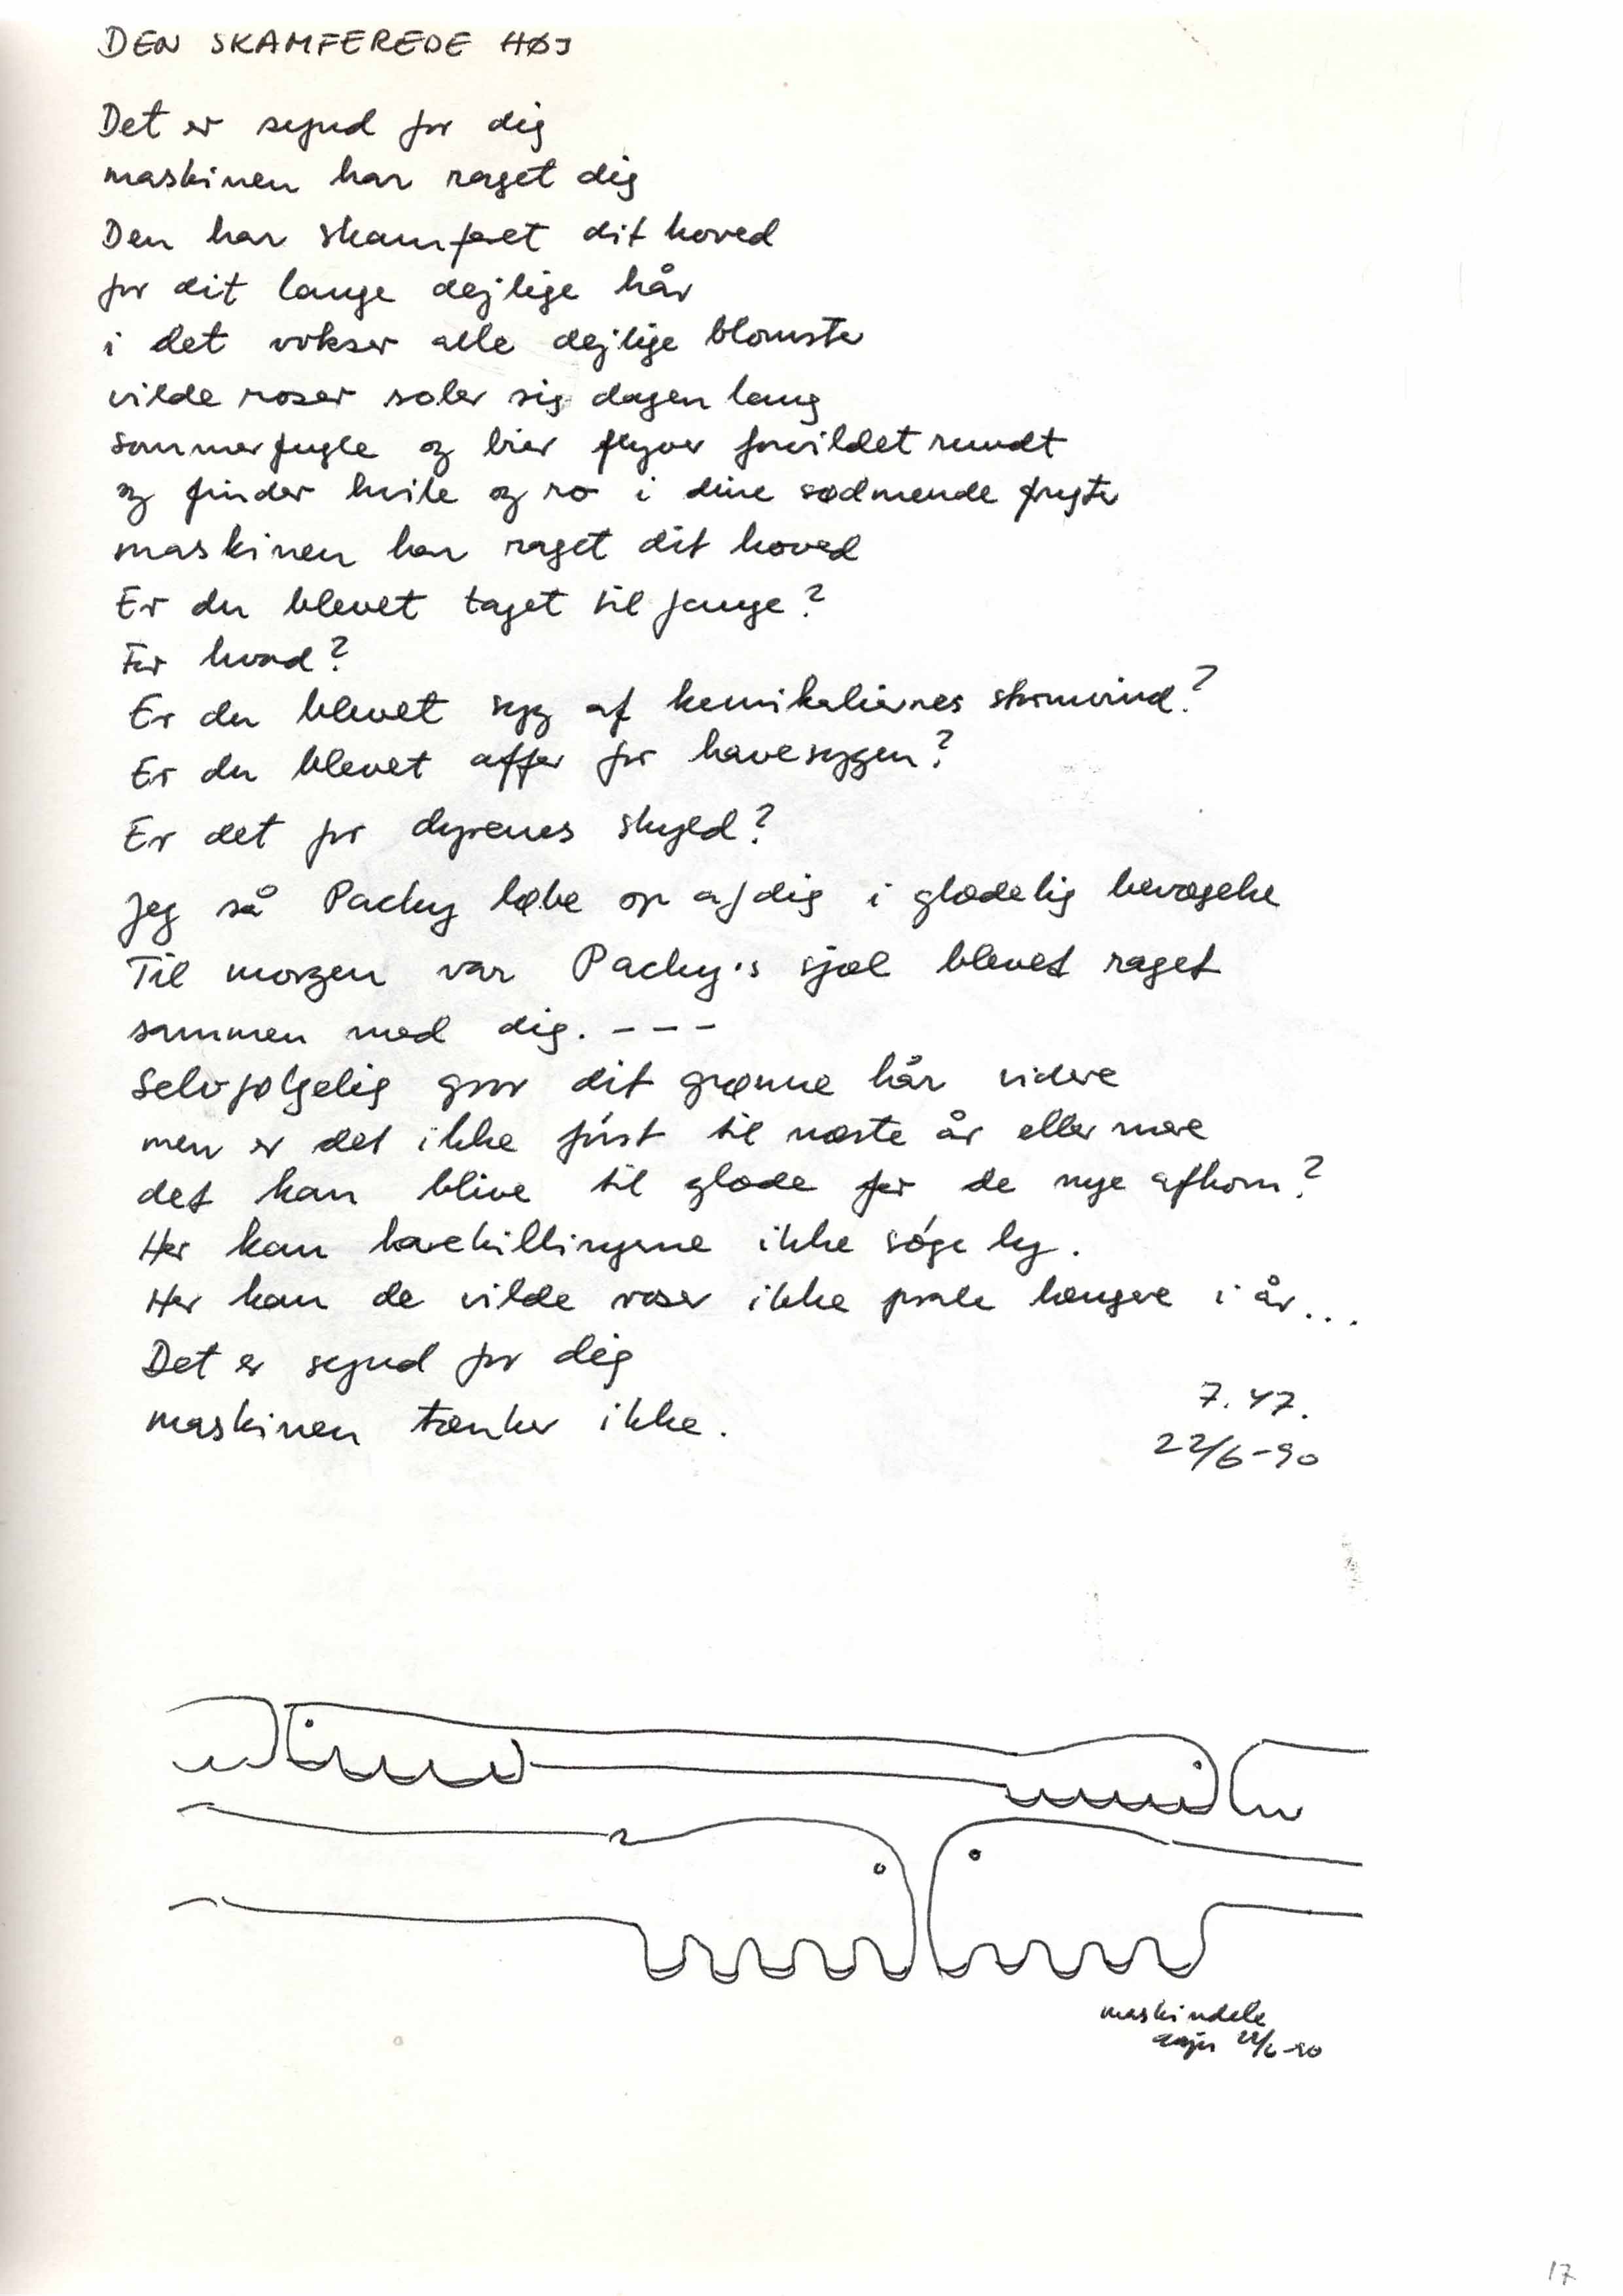 DEN SKAMFEREDE HØJ
Det er synd for dig
maskinen har raget dig
Den har skamferet dit hoved
for dit lange dejlige hår
i det vokser alle dejlige blomster
vilde roser soler sig dagen lang
sommerfugle og bier flyver forvildet rundt
og finder hvile og ro i dine sødmende frugter
maskinen har raget dit hoved
Er du blevet taget til fange?
For hvad?
Er du blevet syg af kemikaliernes stormvind?
Er du blevet offer for havesygen?
Er det for dyrenes skyld?
Jeg så Pachy løbe op af dig i glædelig bevægelse
Til morgen var Pachy's sjæl blevet raget
sammen med dig. ---
Selvfølgelig gror dit grønne hår videre
men er det ikke først til næste år eller mere
det kan blive til glæde for de nye afkom?
Her kan harekillingerne ikke søge ly.
Her kan de vilde roser ikke prale længere i år...
Det er synd for dig
maskinen tænker ikke.
7.47.
22/6-90
maskindele
22/6-90
17